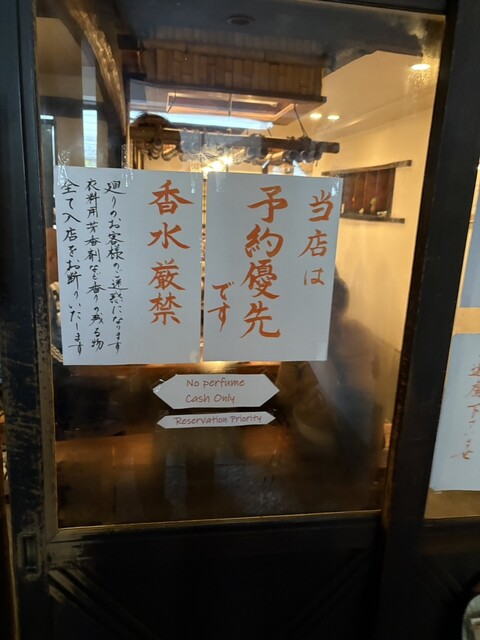 当店は
予約優先
です
香水厳禁
廻りのお客様のご迷惑になります
衣料用芳香剤など香りの残る物
全て入店をお断りいたします
No perfume
Cash Only
Reservation Priority
下さいませ